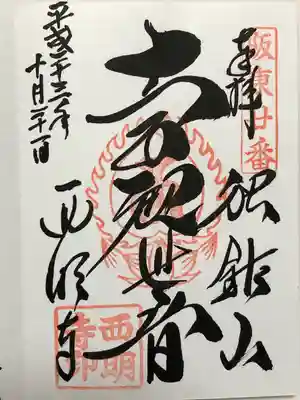 坂東廿番
奉拝
独鈷山
十一面観世音
西明寺
西明
寺印
平成二十三年
十月二十一日